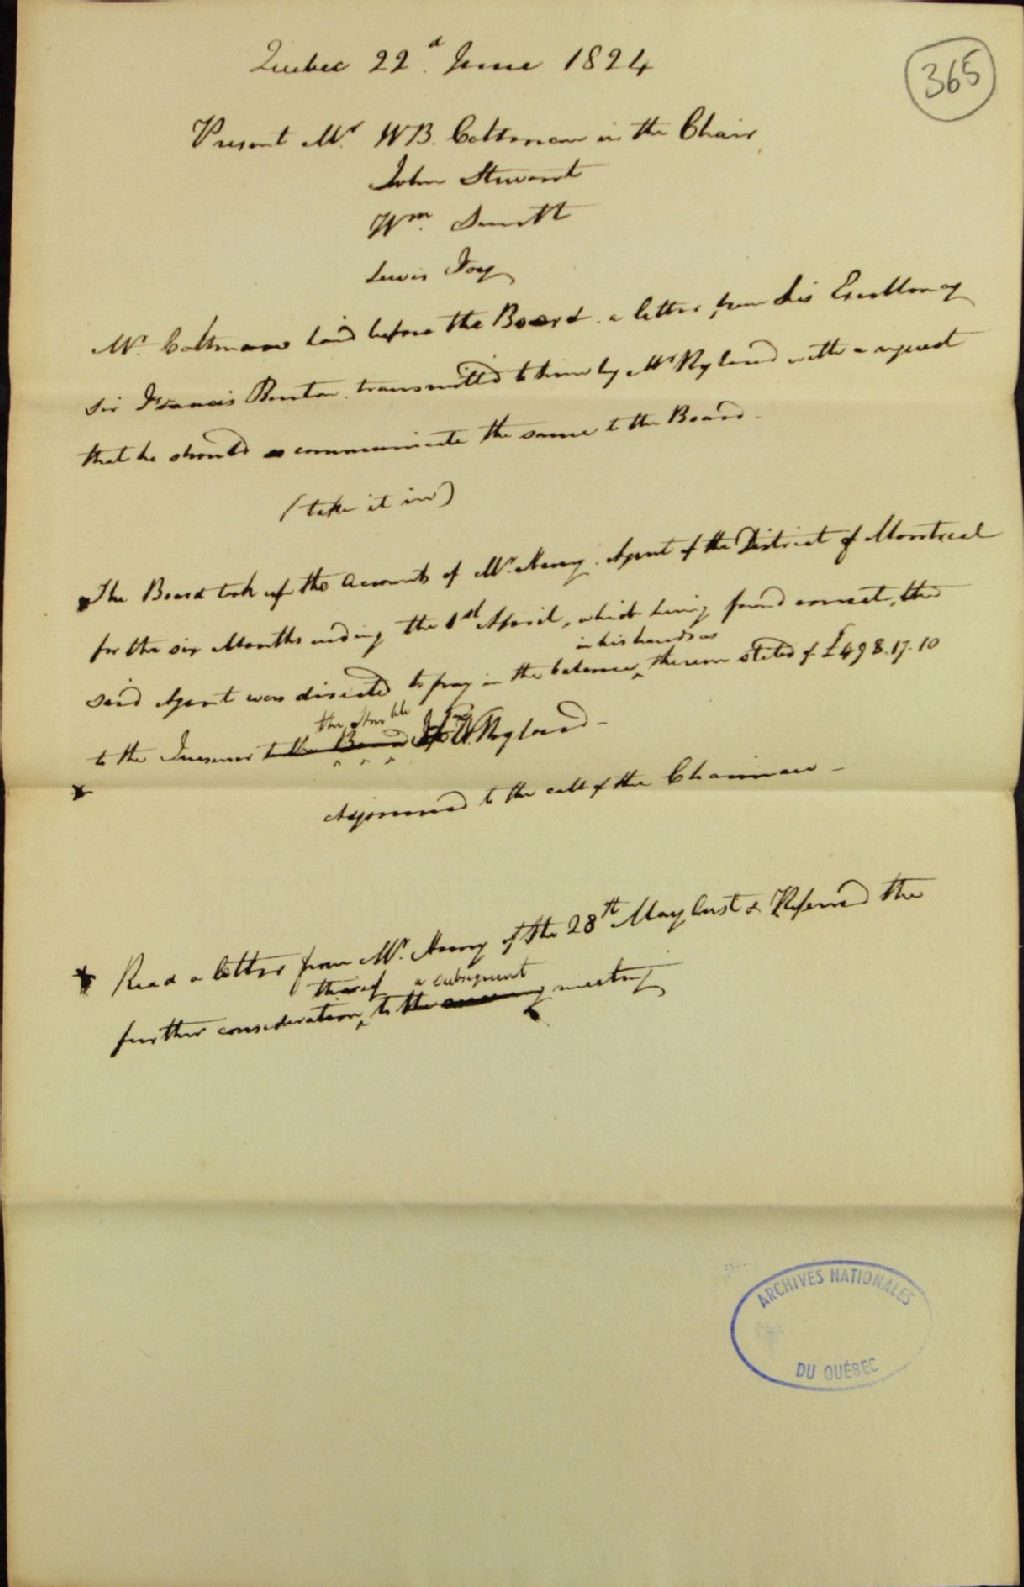 365
Quebec 22d. June 1824
Present Mr. WB. Coltman in the Chair
John Stewart
Wm. Smith
Lewis Foy
Mr. Coltman laid before the Board a letter from His Excellency
Sir Francis Burton transmitted to him by Mr Ryland with a request
that he should communicate the same to the Board.
(take it in)
The Board took up the accounts of Mr. Henry. Agent of the District of Montreal
for the six Months ending the 1st April, which being found correct, the
in his hands as
said Agent was directed to pay in the balance therein stated of £498.17.10
the Honble
to the Treasurer to the Board H. W. Ryland -
Adjourned to the call of the Chairman -
* Read a letter from Mr. Henry of the 28th May last & Referred the
thereof a subsequent
further consideration to the meeting
ARCHIVES NATIONALES
DU QUÉBEC